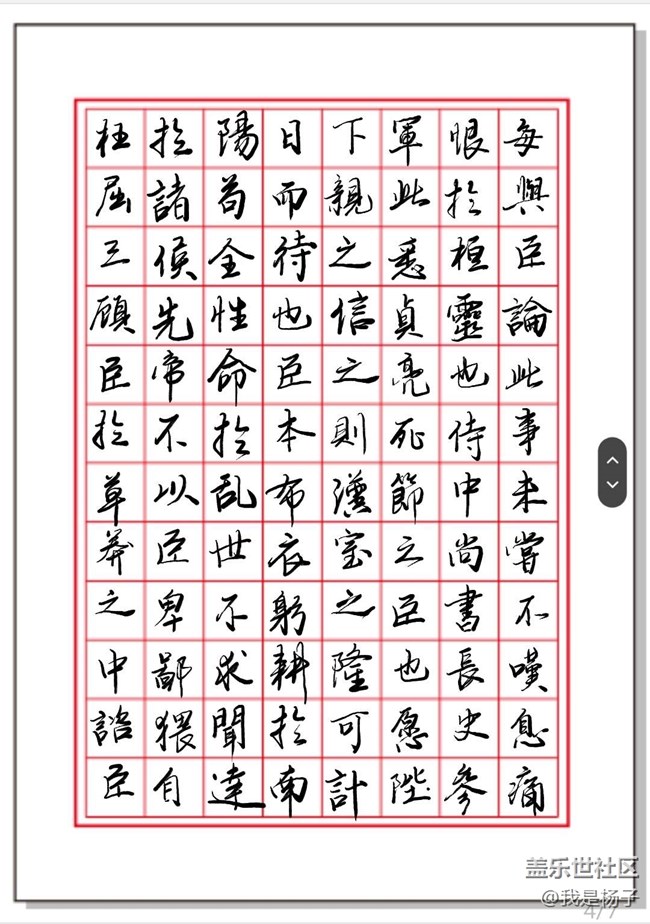 每與臣論此事未嘗不嘆息痛
眼於桓靈也侍中尚書長史參
軍此悉貞亮死節之臣也愿陛
下親之信之則漢室之隆可計
日而待也臣本布衣躬耕於南
陽苟全性命於乱世不求聞達
於諸侯先帝不以臣卑鄙猥自
枉屈三顧臣於草莽之中諮臣
盖乐世社区
@我是杨子
4/7